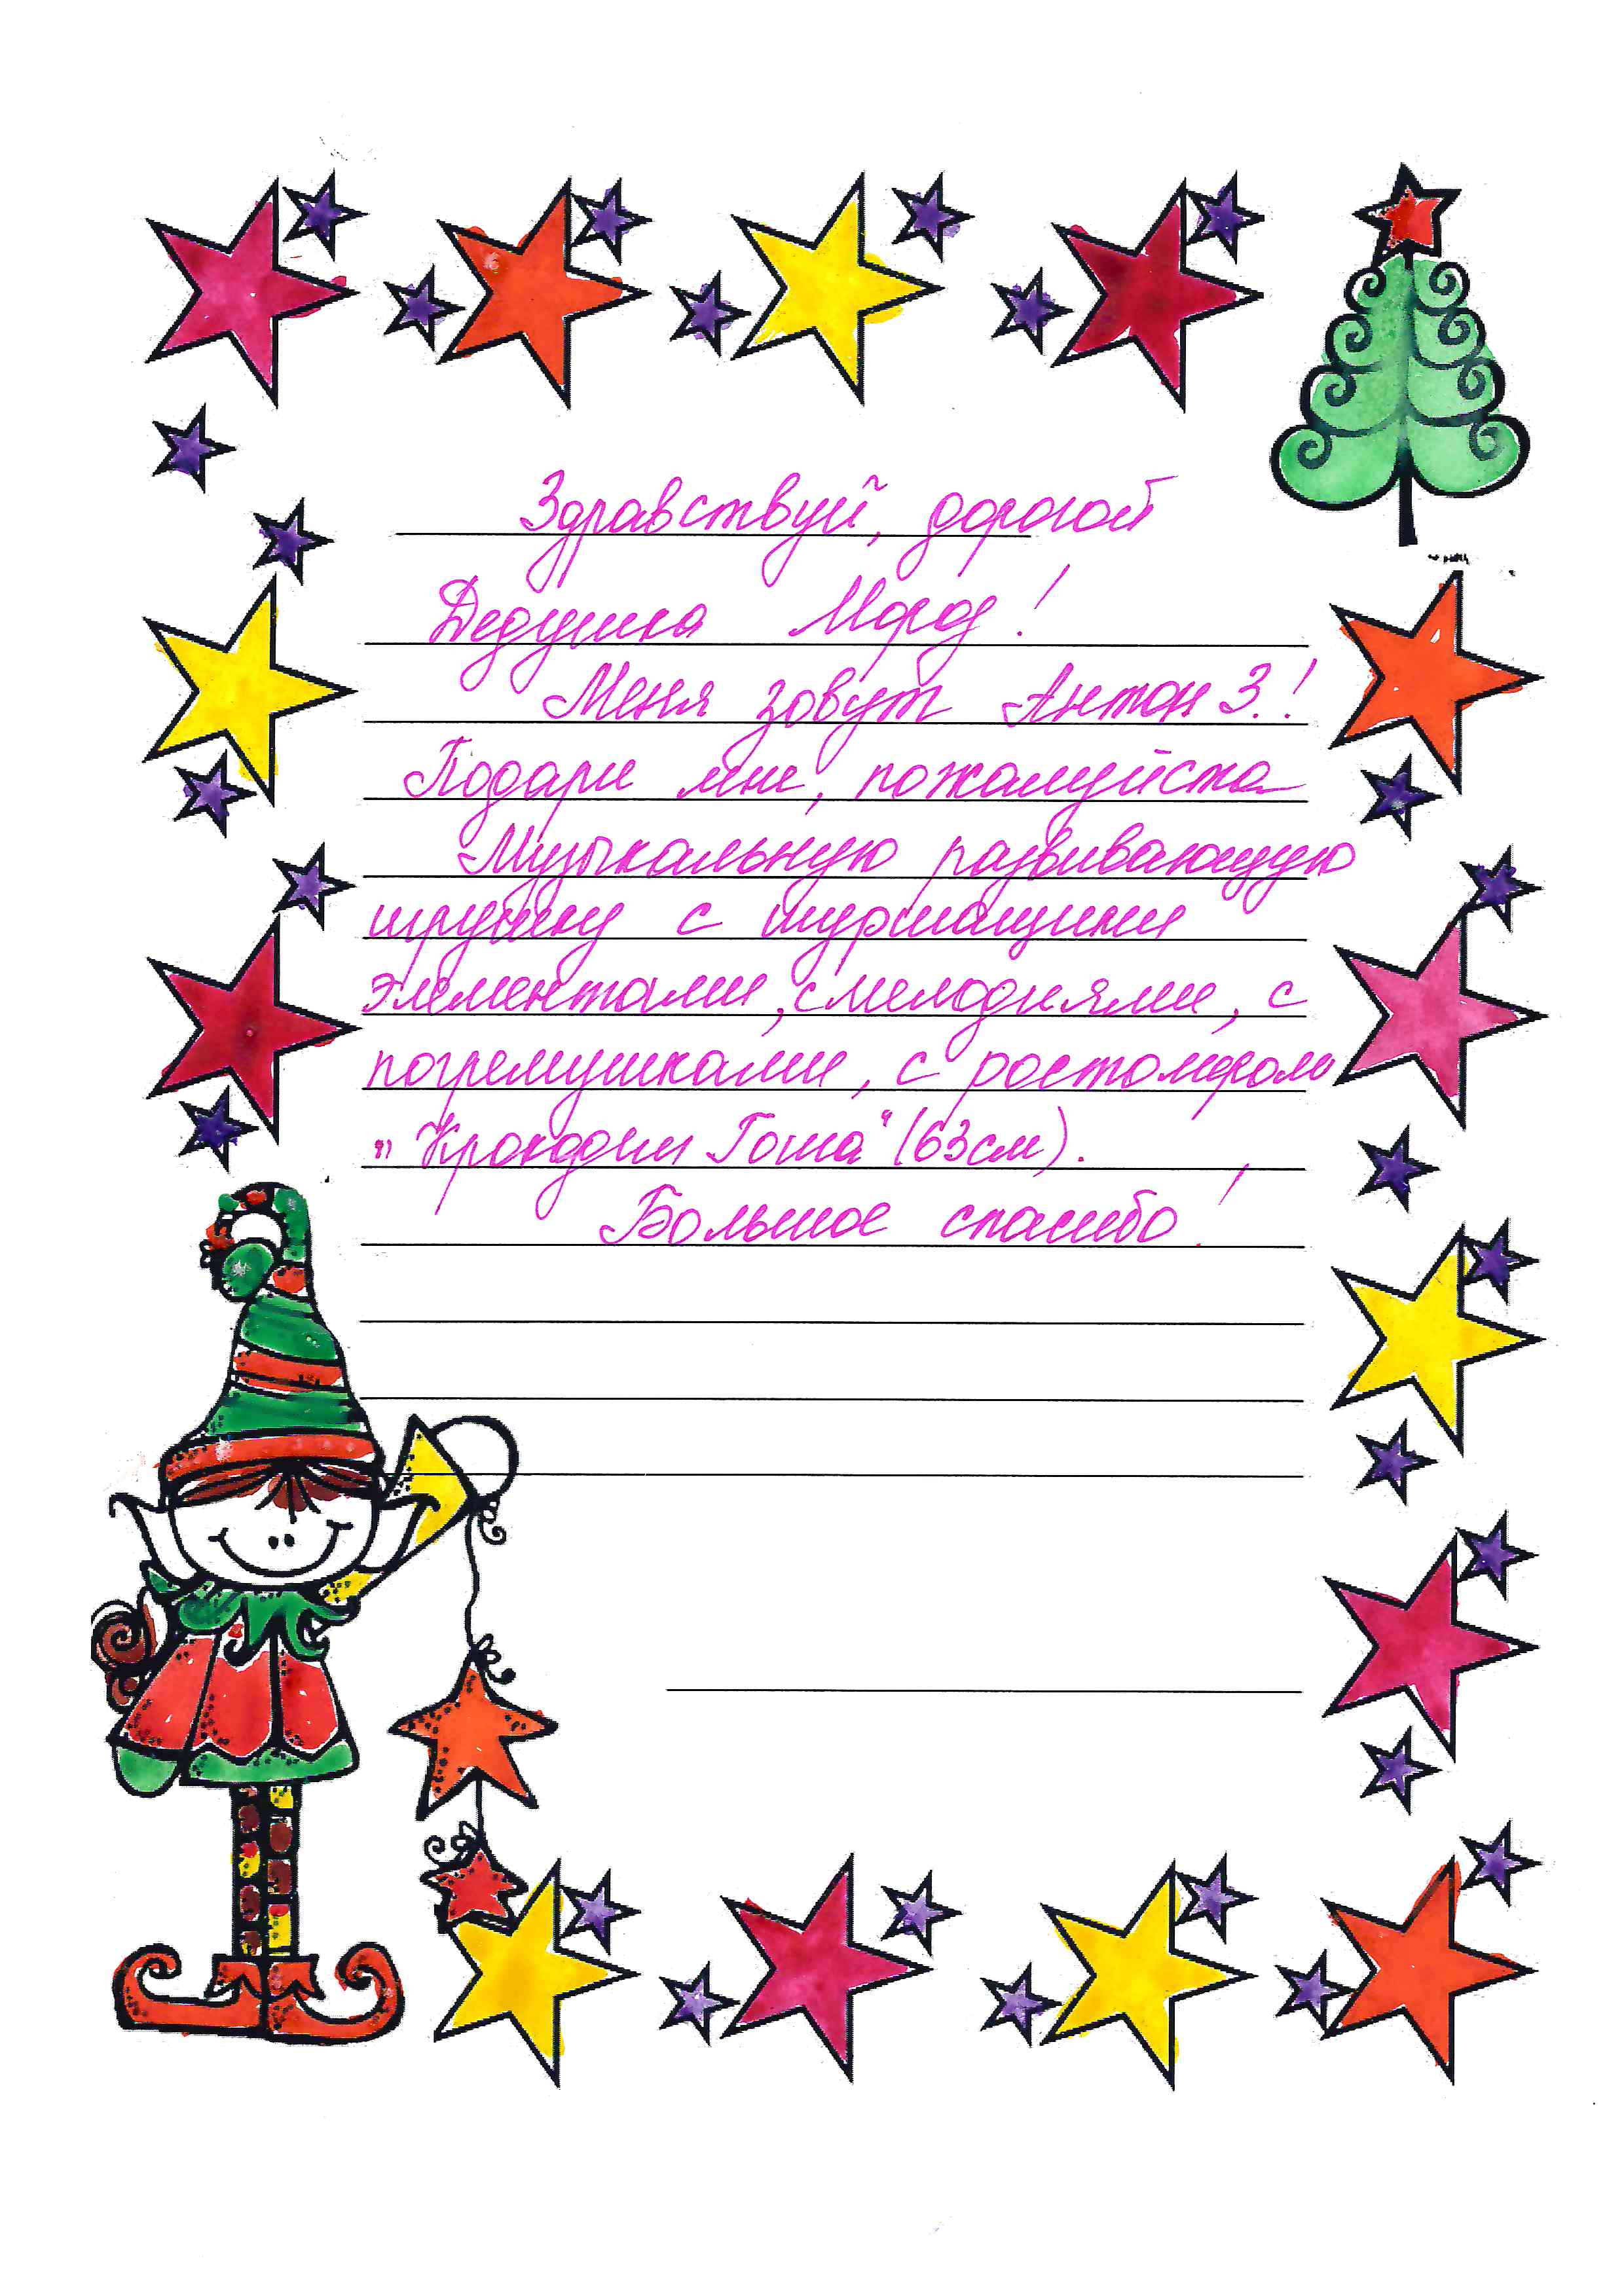 Здравствуй, дорогой
Дедушка Мороз!
Меня зовут Антон З.!
Подари мне, пожалуйста
Музыкальную развивающую
игрушку с шуршащими
элементами, с мелодиями, с
погремушками, с ростомером
„Крокодил Гоша" (63см).
Большое спасибо!